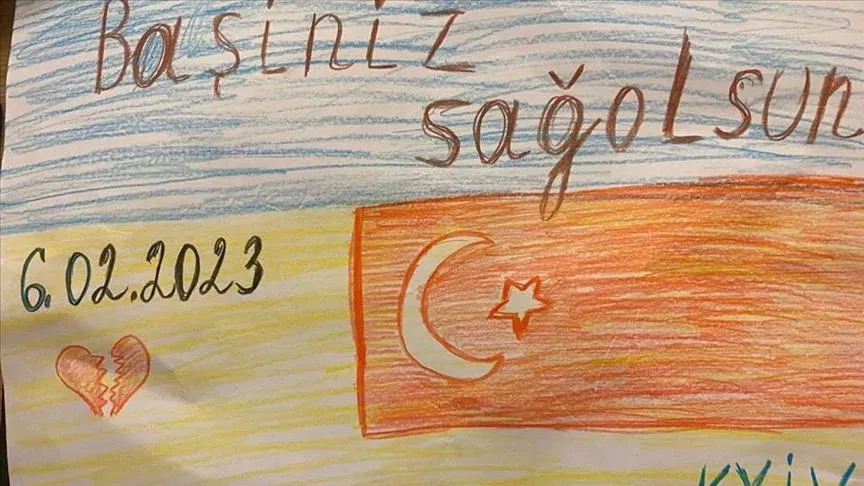 Başiniz
sağolsun
6.02.2023
Kyiv